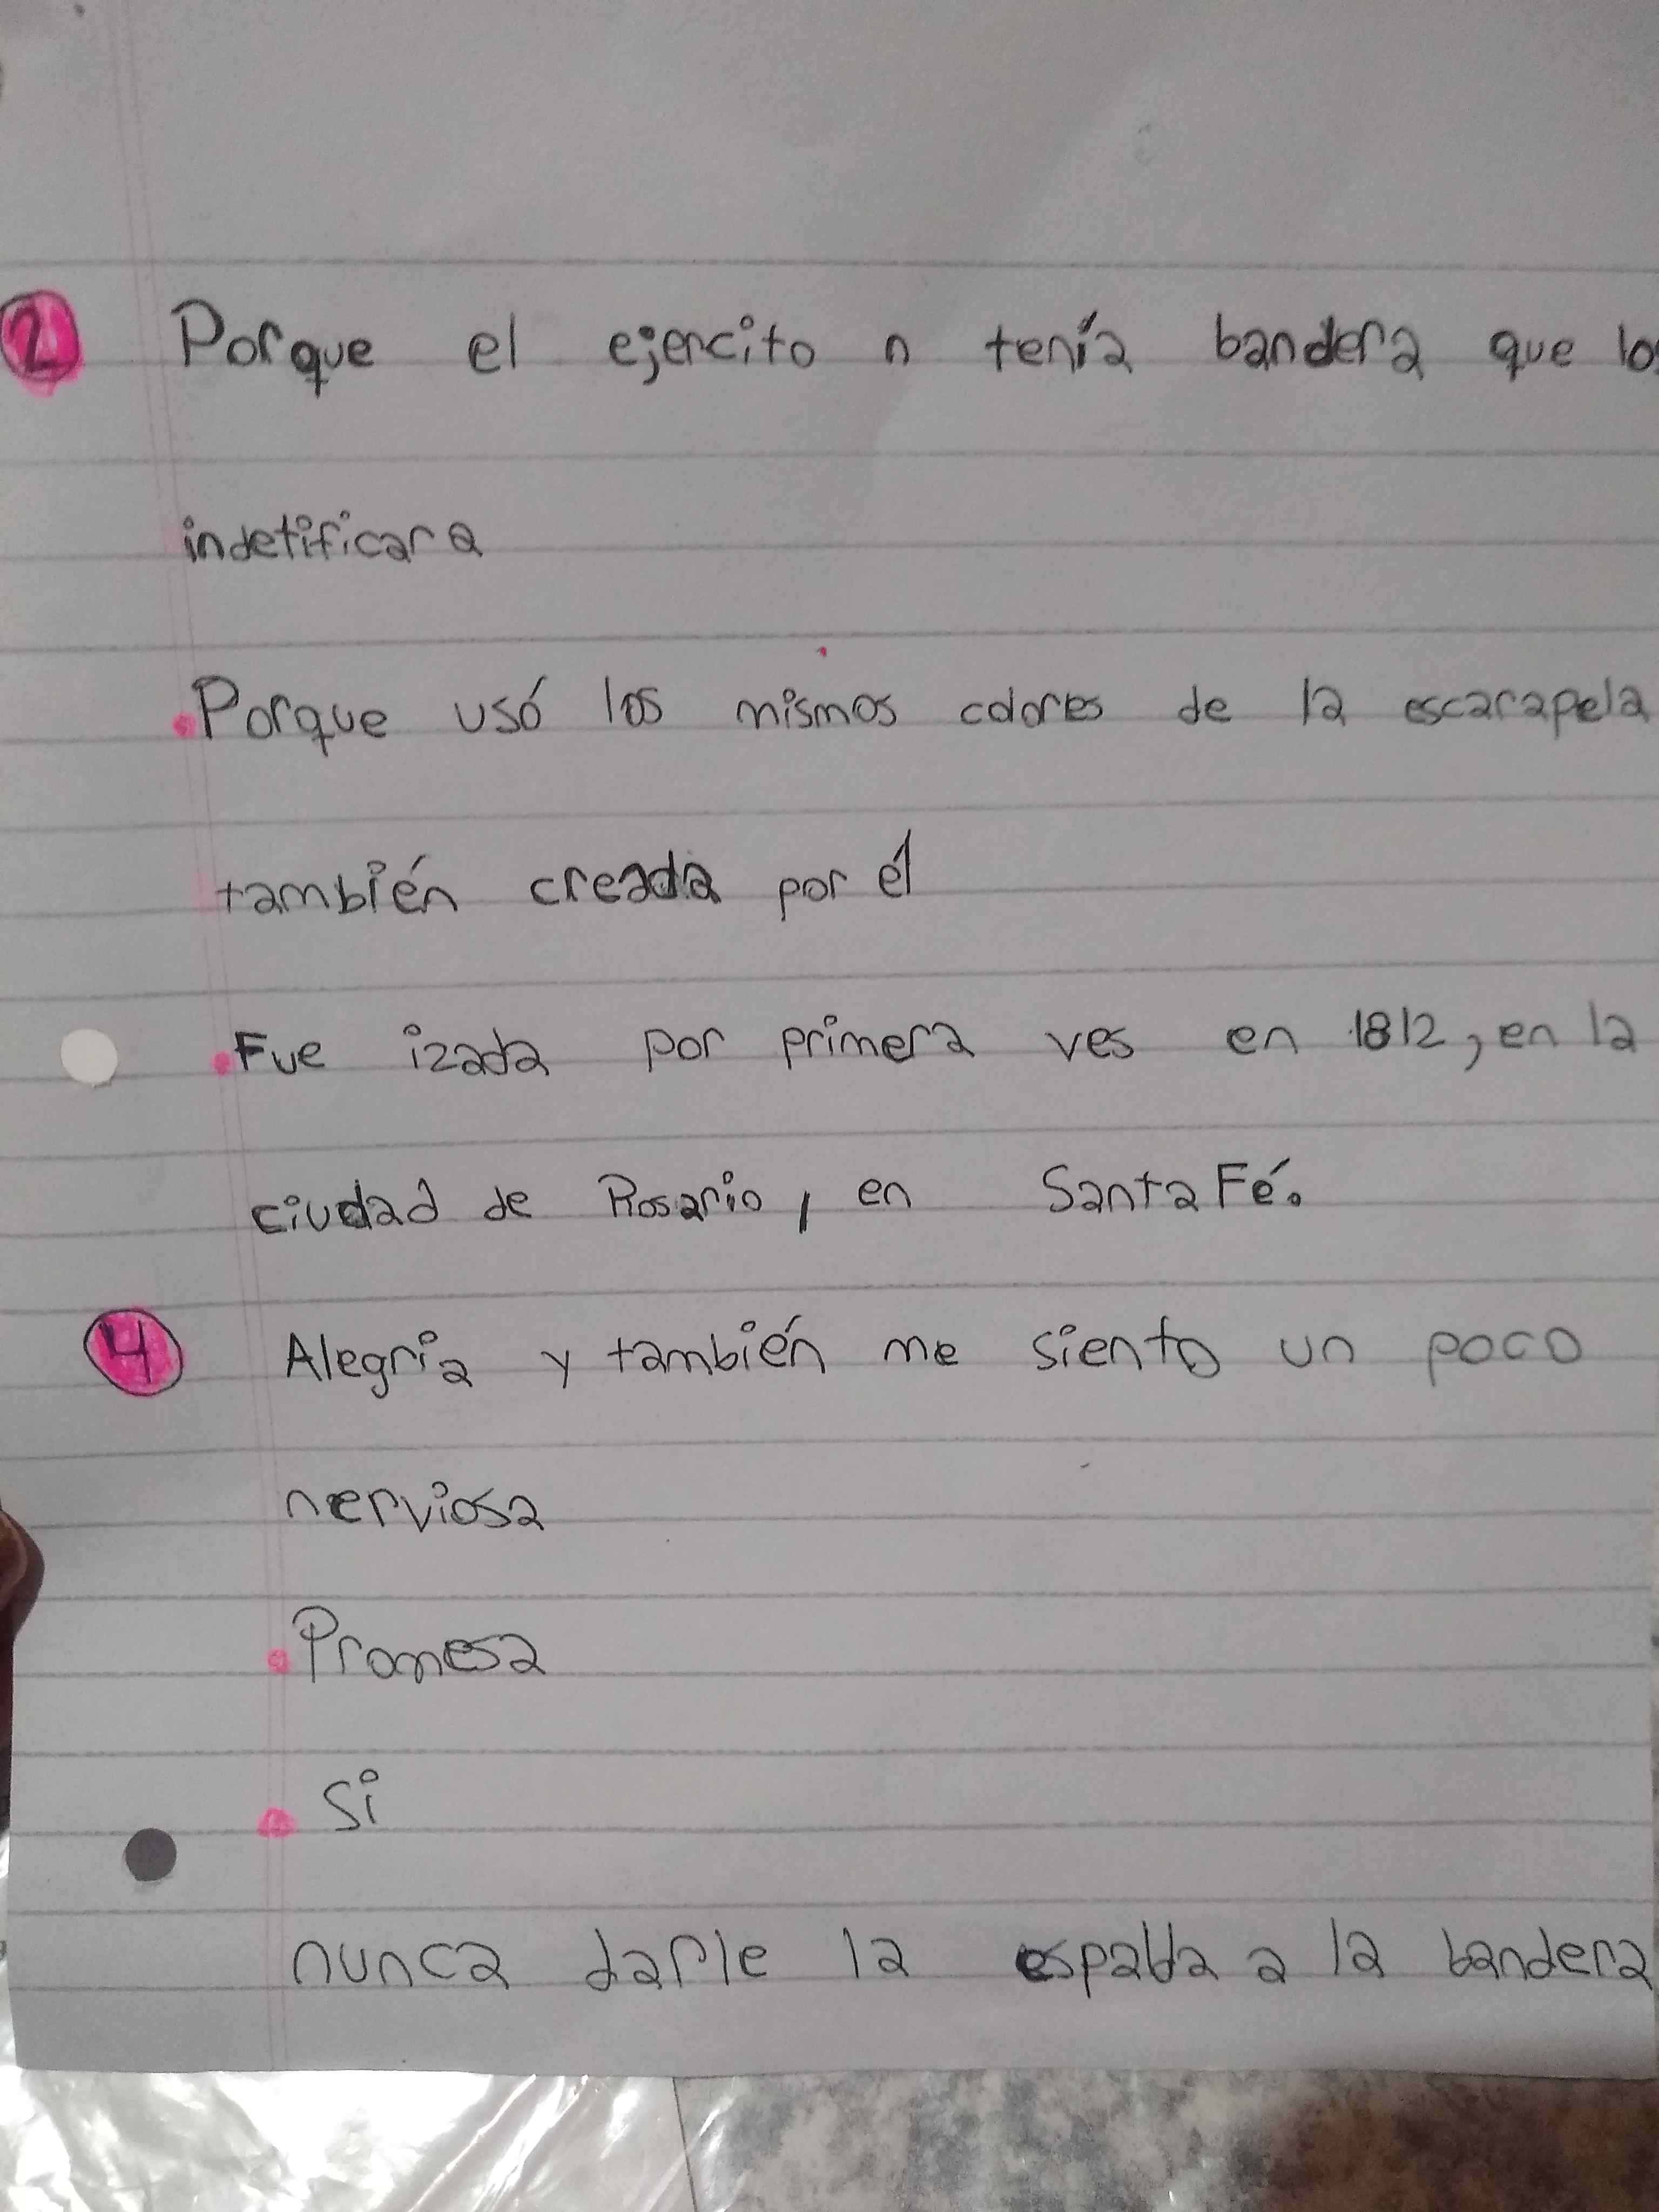 2 Porque el ejercito n tenía bandera que los
indetificara
Porque usó los mismos colores de la escarapela
también creada por él
Fue izada por primera ves en 1812, en la
ciudad de Rosario, en Santa Fé.
4 Alegria y también me siento un poco
nerviosa
Promesa
Si
nunca darle la espalda a la bandera